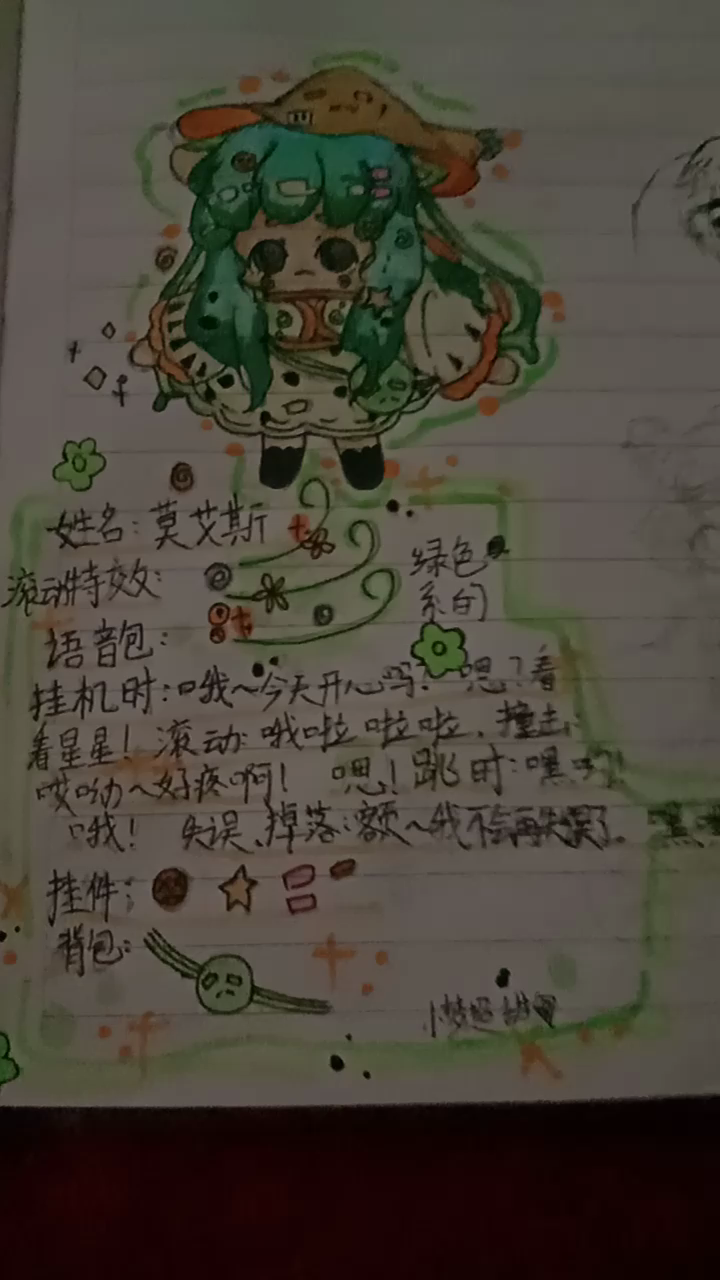 姓名：莫艾斯
滚动特效：
绿色
系的
语音包：
挂机时：哦～今天开心吗？嗯？看
看星星！滚动：哦啦啦啦啦、撞击：
哎呦～好疼啊！嗯！跳时：嘿哟！
哦！失误、掉落：额～我不会再失误了。
挂件：
背包：